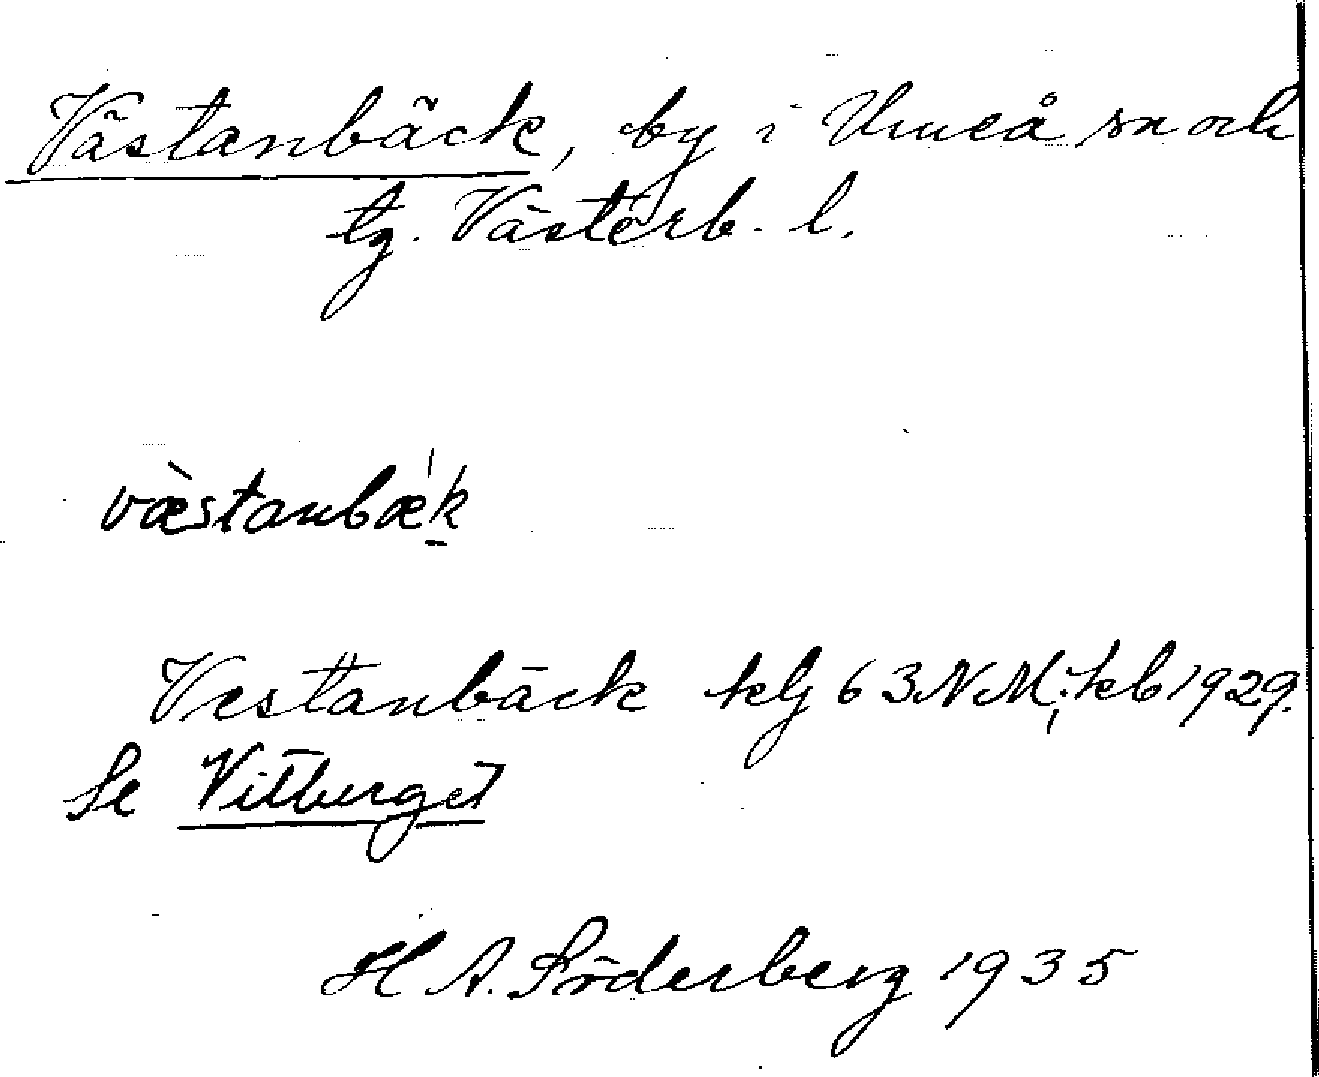 Västanbäck, by i Umeå sn och
tg. Västerb. l.
væ̀stanbæ´k̲
Vestanbäck klj 63 NM; kb 1929.
Se Vitberget
H A. Söderberg 1935